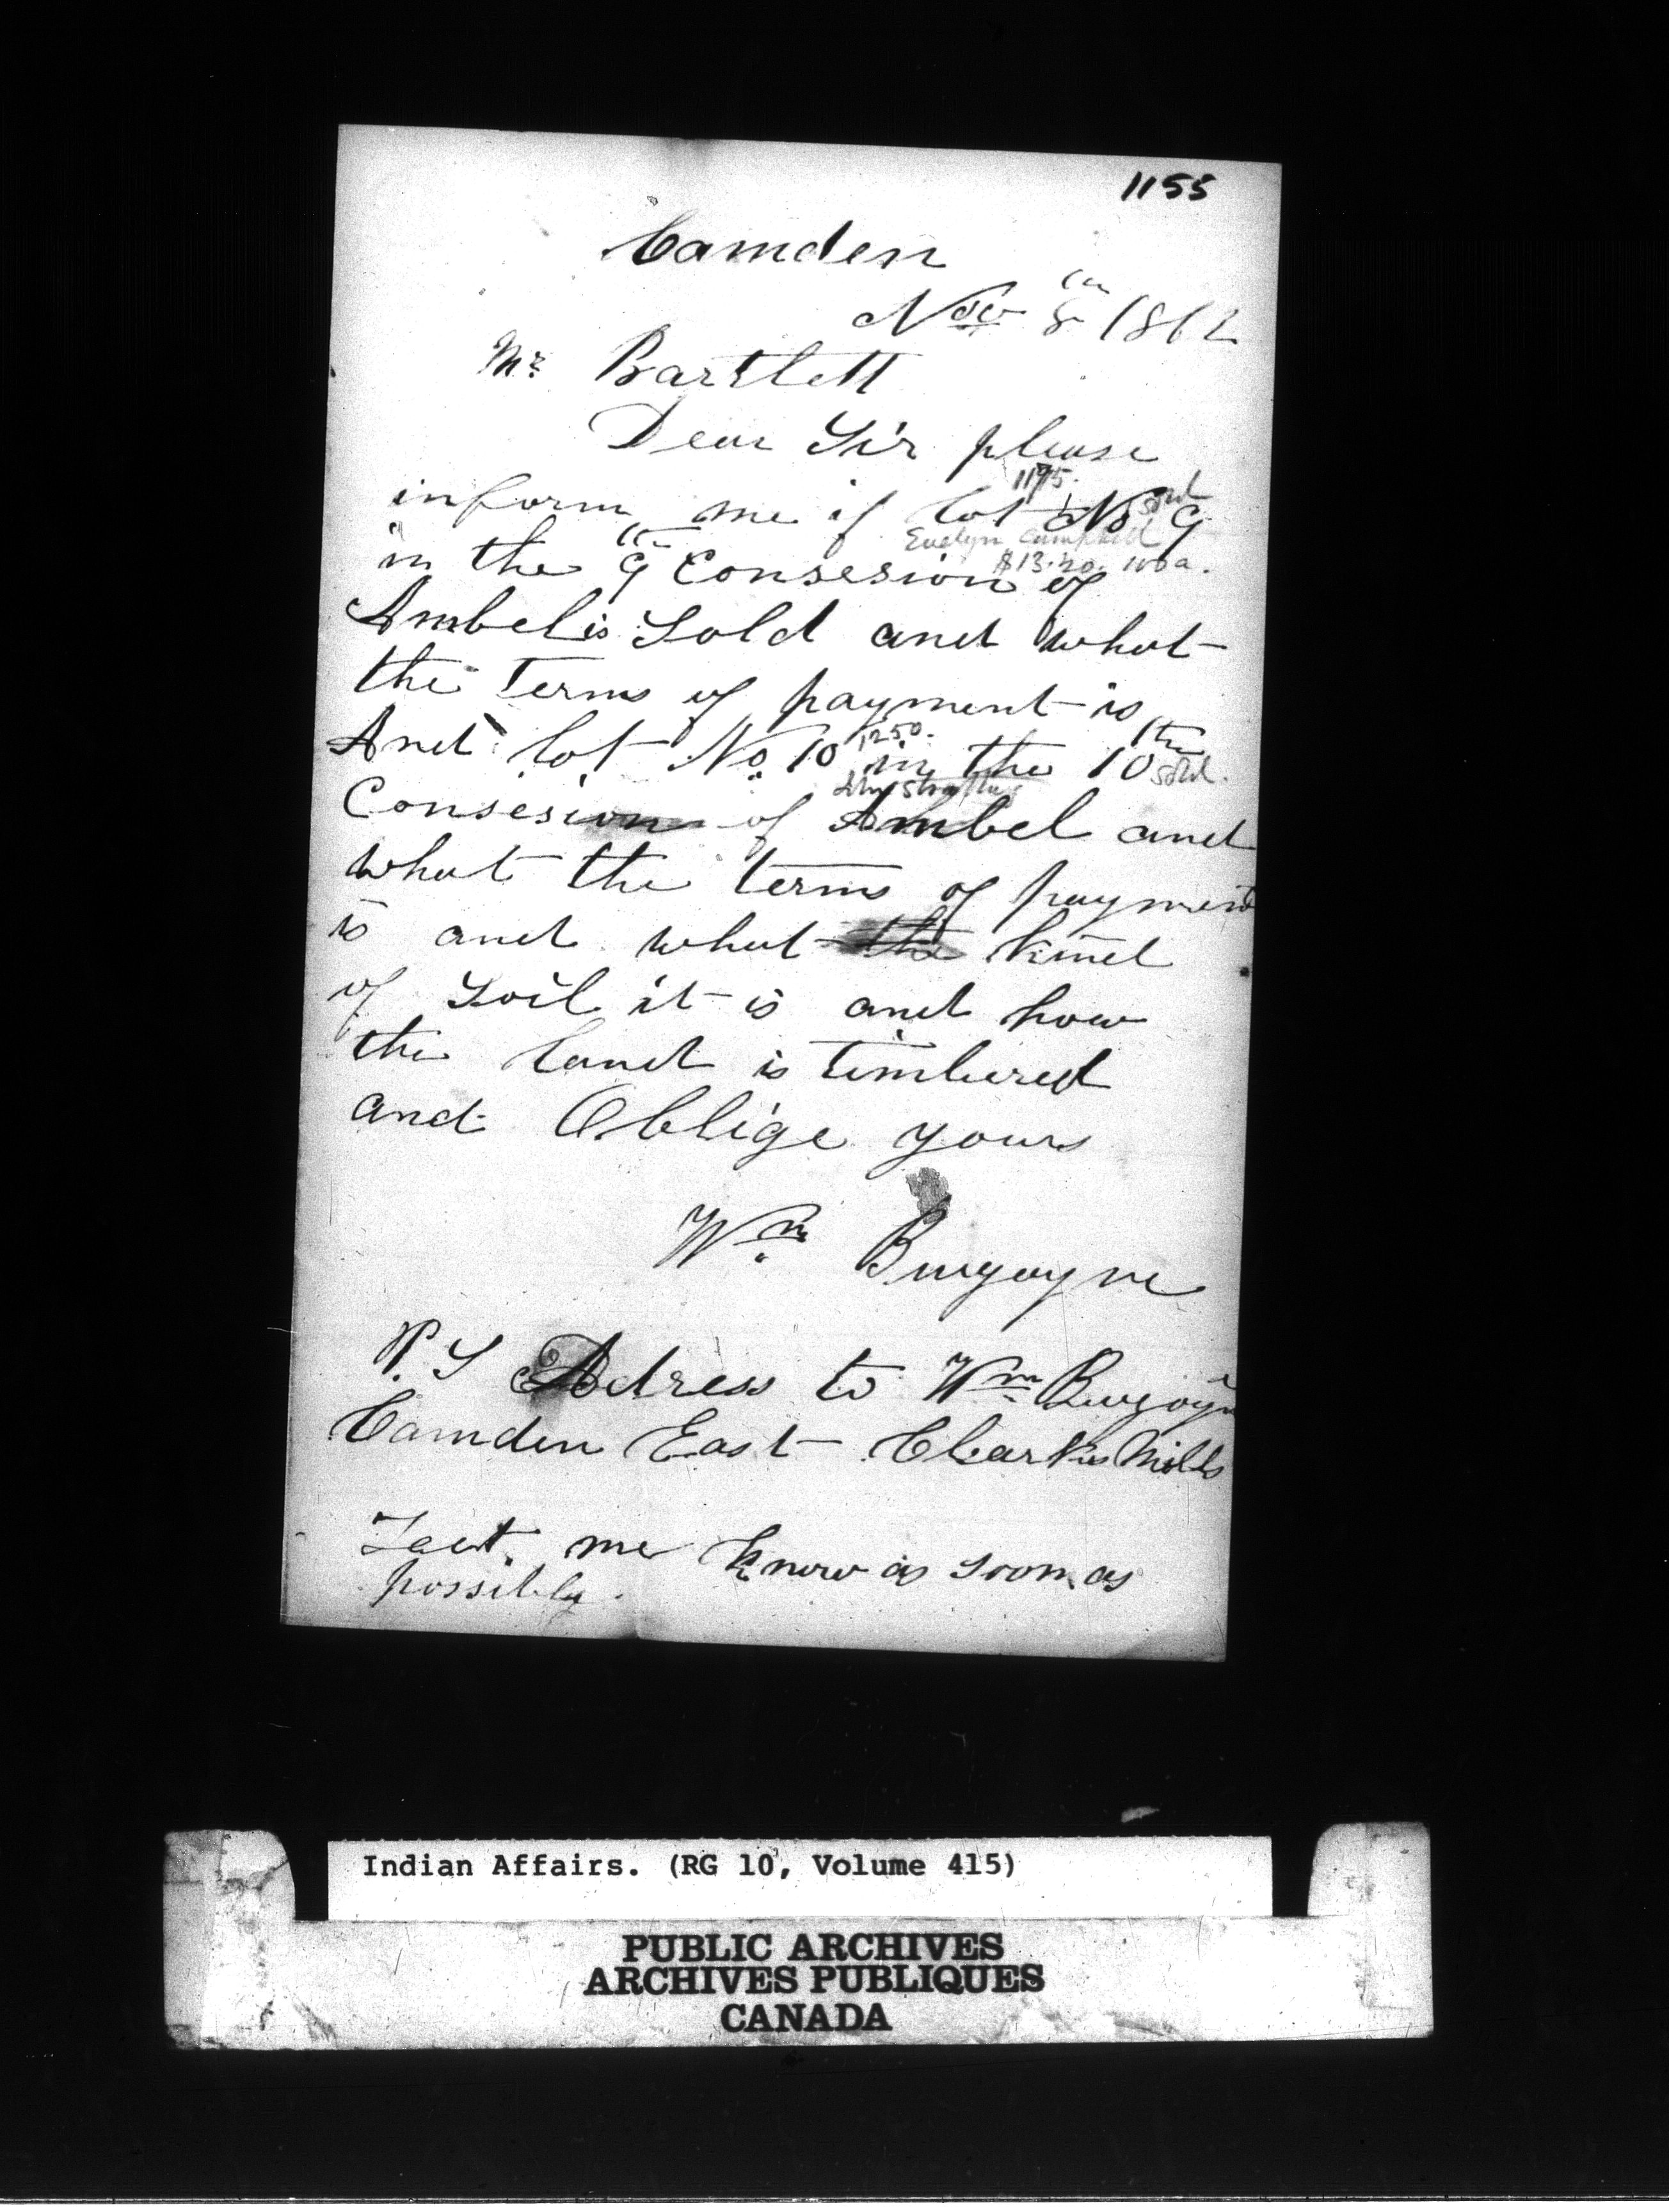 1155
Camden
Nov 8th 1862
Mr Bartlett
Dear Sir please
1175.
inform me if lot No 9 sold
Evelyn Campbell
in the 9th Consesion of
$13.20. 100a.
Ambel is Sold and what
the Terms of payment is
And lot No 10 in the 10th
1250. sold.
Consesion of Ambel and
what the terms of payment
is and what the kind
of Soil it is and how
the land is timbered
and Oblige yours
Wm Burgoyne
P.S Adress to Wm Burgoyn
Camden East Clarkes Mills
me know as soon as
possible.
Indian Affairs. (RG 10, Volume 415)
PUBLIC ARCHIVES
ARCHIVES PUBLIQUES
CANADA